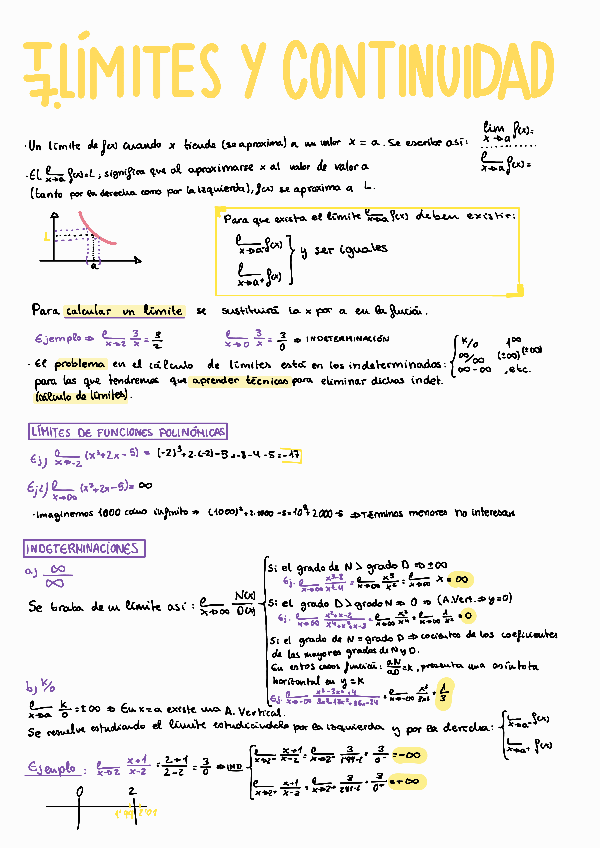 T.7. LÍMITES Y CONTINUIDAD
· Un límite de f(x) cuando x tiende (se aproxima) a un valor x = a. Se escribe así: lim x→a f(x)=
· El l x→a f(x)=L, significa que al aproximarse x al valor de valor a
l x→a f(x)=
(tanto por la derecha como por la izquierda), f(x) se aproxima a L.
L
a
Para que exista el límite l x→a f(x) deben existir:
l x→a⁻ f(x)
l x→a⁺ f(x)
y ser iguales
Para calcular un límite se sustituirá la x por a en la función.
Ejemplo ⇒ l x→2 3/x = 3/2
l x→0 3/x = 3/0 → INDETERMINACIÓN
· El problema en el cálculo de límites está en los indeterminados:
k/0 1^∞
∞/∞ (±∞)^(±∞)
∞-∞, etc.
para las que tendremos que aprender técnicas para eliminar dichas indet.
(cálculo de límites).
LÍMITES DE FUNCIONES POLINÓMICAS
Ej) l x→-2 (x³+2x-5) = (-2)³+2·(-2)-5=-8-4-5=-17
Ej2) l x→∞ (x³+2x-5)= ∞
· Imaginemos 1000 como infinito ⇒ (1000)³+2·1000-5=10⁹+2000-5 ⇒ Términos menores no interesan
INDETERMINACIONES
a) ∞/∞
Se trata de un límite así: l x→∞ N(x)/D(x)
Si el grado de N > grado D ⇒ ±∞
Si el grado D > grado N ⇒ 0 ⇒ (A.Vert. ⇒ y=0)
Si el grado de N = grado D ⇒ cociente de los coeficientes
de las mayores grados de N y D.
En estos casos función: aN/aD = k, presenta una asíntota
horizontal en y=k
b) k/0
l x→a k/0 = ±∞ ⇒ En x=a existe una A. Vertical.
Se resuelve estudiando el límite estudiándolo por la izquierda y por la derecha:
l x→a⁻ f(x)
l x→a⁺ f(x)
Ejemplo: l x→2 x+1/x-2 = 2+1/2-2 = 3/0 ⇒ IND
l x→2⁻ x+1/x-2 = l x→2⁻ 3/1'99-2 = 3/0⁻ = -∞
l x→2⁺ x+1/x-2 = l x→2⁺ 3/2'01-2 = 3/0⁺ = +∞
0 2
1'99 2'01